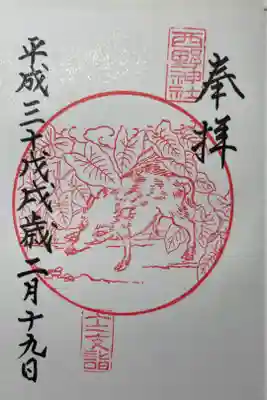 奉拝
西野神社
十二支詣
平成三十戊戌歳二月十九日